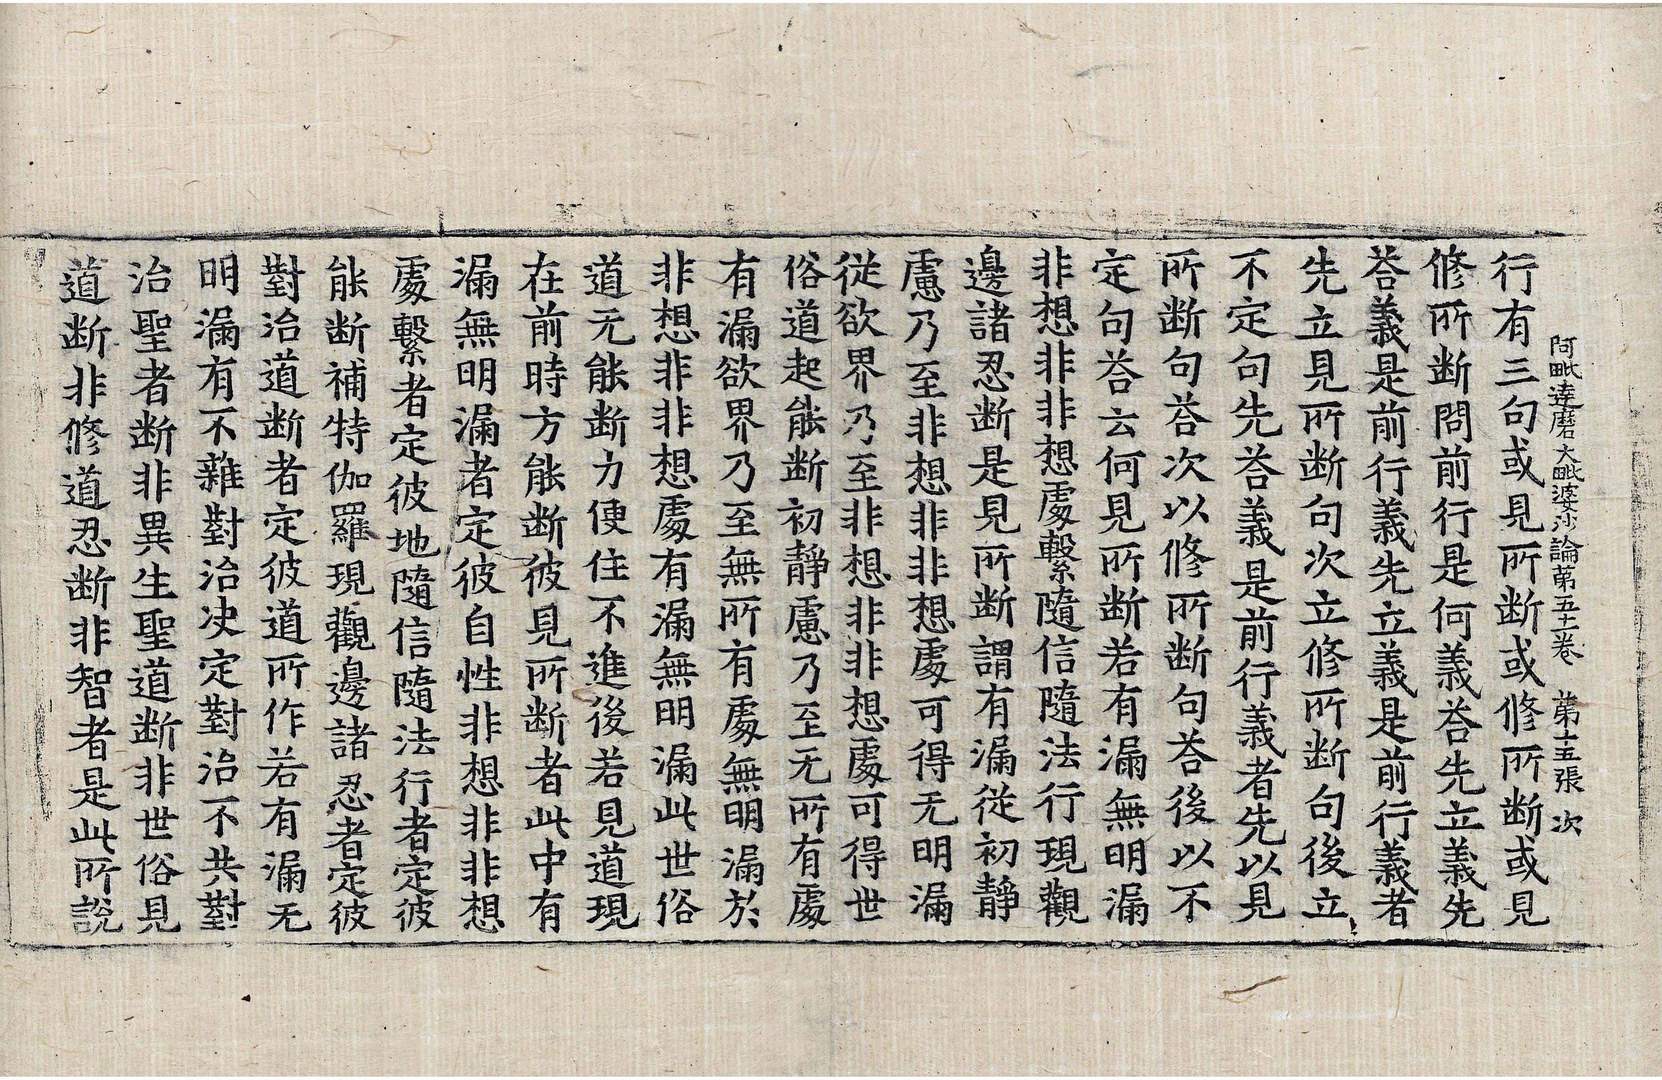 阿毗達磨大毗婆沙論第五十一卷　第十五張　次
行有三句或見所斷或修所斷或見
修所斷問前行是何義荅先立義先
荅義是前行義先立義是前行義者
先立見所斷句次立修所斷句後立
不定句先荅義是前行義者先以見
所斷句荅次以修所斷句荅後以不
定句荅云何見所斷若有漏無明漏
非想非非想處繫隨信隨法行現觀
邊諸忍斷是見所斷謂有漏從初靜
慮乃至非想非非想處可得无明漏
從欲界乃至非想非非想處可得世
俗道起能斷初靜慮乃至无所有處
有漏欲界乃至無所有處無明漏於
非想非非想處有漏無明漏此世俗
道无能斷力便住不進後若見道現
在前時方能斷彼見所斷者此中有
漏無明漏者定彼自性非想非非想
處繫者定彼地隨信隨法行者定彼
能斷補特伽羅現觀邊諸忍者定彼
對治道斷者定彼道所作若有漏无
明漏有不雜對治决定對治不共對
治聖者斷非異生聖道斷非世俗見
道斷非修道忍斷非智者是此所說